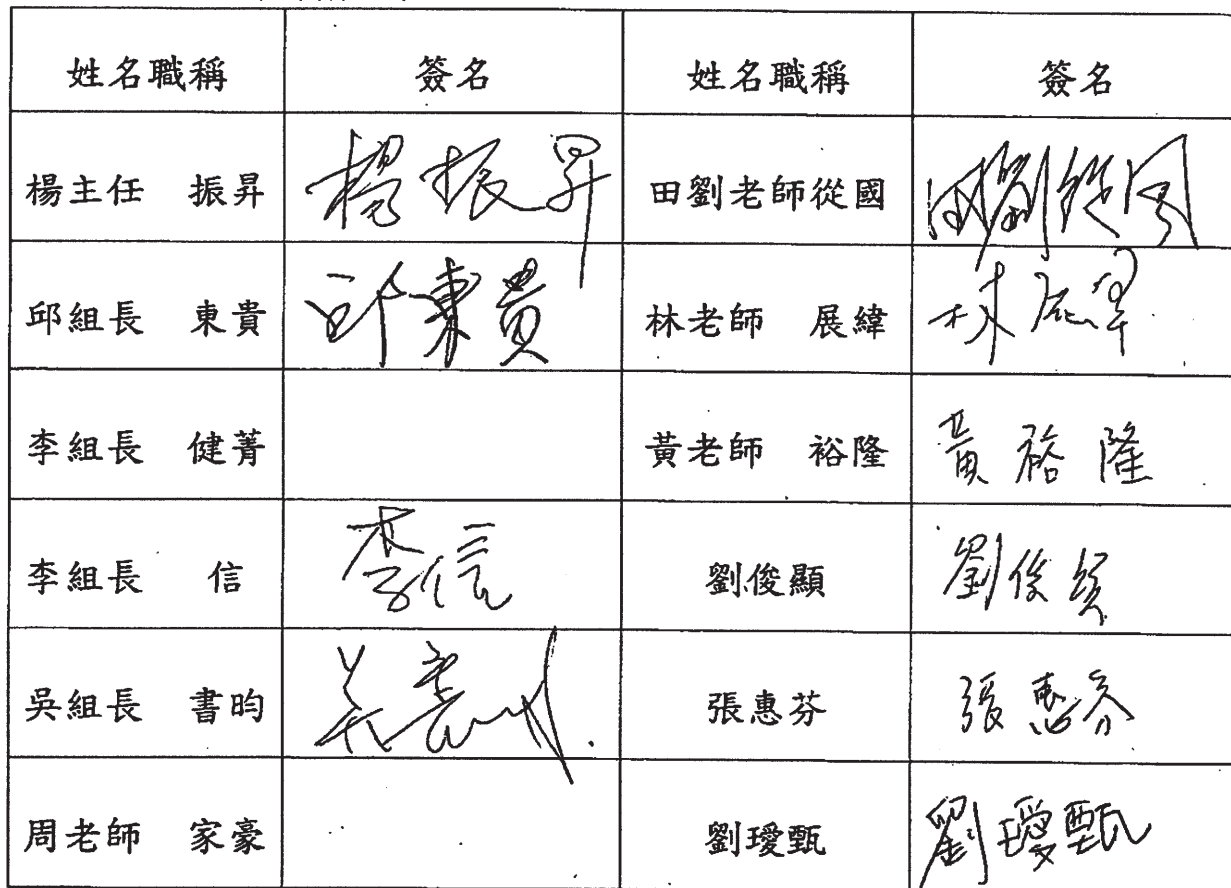 姓名職稱 簽名 姓名職稱 簽名
楊主任 振昇 楊振昇 田劉老師從國 田劉從國
邱組長 東貴 邱東貴 林老師 展緯 林展緯
李組長 健菁 黃老師 裕隆 黃裕隆
李組長 信 李信 劉俊顯 劉俊顯
吳組長 書昀 吳書昀 張惠芬 張惠芬
周老師 家豪 劉璦甄 劉璦甄